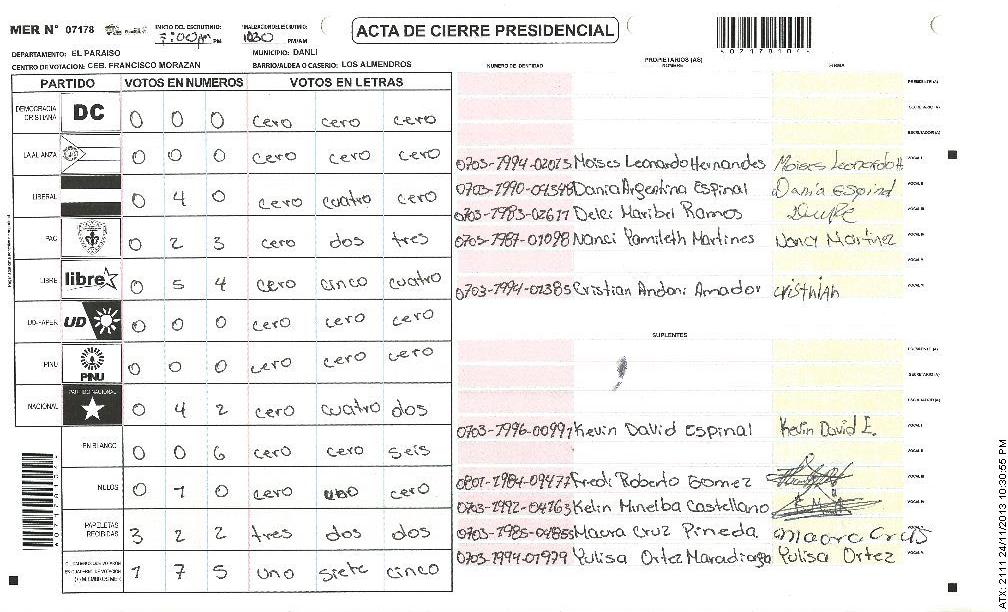 MER N° 07178 INICIO DEL ESCRUTINIO: 5:00 PM PM FINALIZACION ESCRUTINIO: 1030 PM/AM
ACTA DE CIERRE PRESIDENCIAL
DEPARTAMENTO: EL PARAISO MUNICIPIO: DANLI
CENTRO DE VOTACION: CEB. FRANCISCO MORAZAN BARRIO/ALDEA O CASERIO: LOS ALMENDROS
PARTIDO VOTOS EN NUMEROS VOTOS EN LETRAS
DEMOCRACIA CRISTIANA DC 0 0 0 cero cero cero
LA ALIANZA 0 0 0 cero cero cero
LIBERAL 0 4 0 cero cuatro cero
PAC 0 2 3 cero dos tres
LIBRE libre 0 5 4 cero cinco cuatro
UD-FAPER UD 0 0 0 cero cero cero
PINU PINU 0 0 0 cero cero cero
NACIONAL PARTIDO NACIONAL 0 4 2 cero cuatro dos
EN BLANCO 0 0 6 cero cero seis
NULOS 0 1 0 cero uno cero
PAPELETAS RECIBIDAS 3 2 2 tres dos dos
1 7 5 uno siete cinco
NUMERO DE IDENTIDAD PROPIETARIOS (AS) NOMBRE FIRMA
PRESIDENTE (A)
SECRETARIO (A)
ESCRUTADOR (A)
VOCAL I
Moises Leonardo Hernandes Moises Leonardo H
VOCAL II
Dania Argentina Espinal Dania Espinal
VOCAL III
0703-1983-02617 Delci Maribel Ramos
VOCAL IV
0703-1987-01098 Nanci Yamileth Martines Nanci Martinez
VOCAL V
0703-1994-01385 Cristian Andoni Amador cristhian
SUPLENTES
PRESIDENTE (A)
SECRETARIO (A)
ESCRUTADOR (A)
VOCAL I
0703-1996-00991 Kevin David Espinal Kevin David E.
VOCAL II
0801-1984-09477 Fredi Roberto Gomez
VOCAL III
0703-1992-04163 Kelin Minelba Castellano
VOCAL IV
0703-1985-04855 Maora Cruz Pineda. maora Crus
VOCAL V
0703-1994-01979 Yulisa Ortez Maradiaga Yulisa Ortez
ATX: 2111 24/11/2013 10:30:55 PM